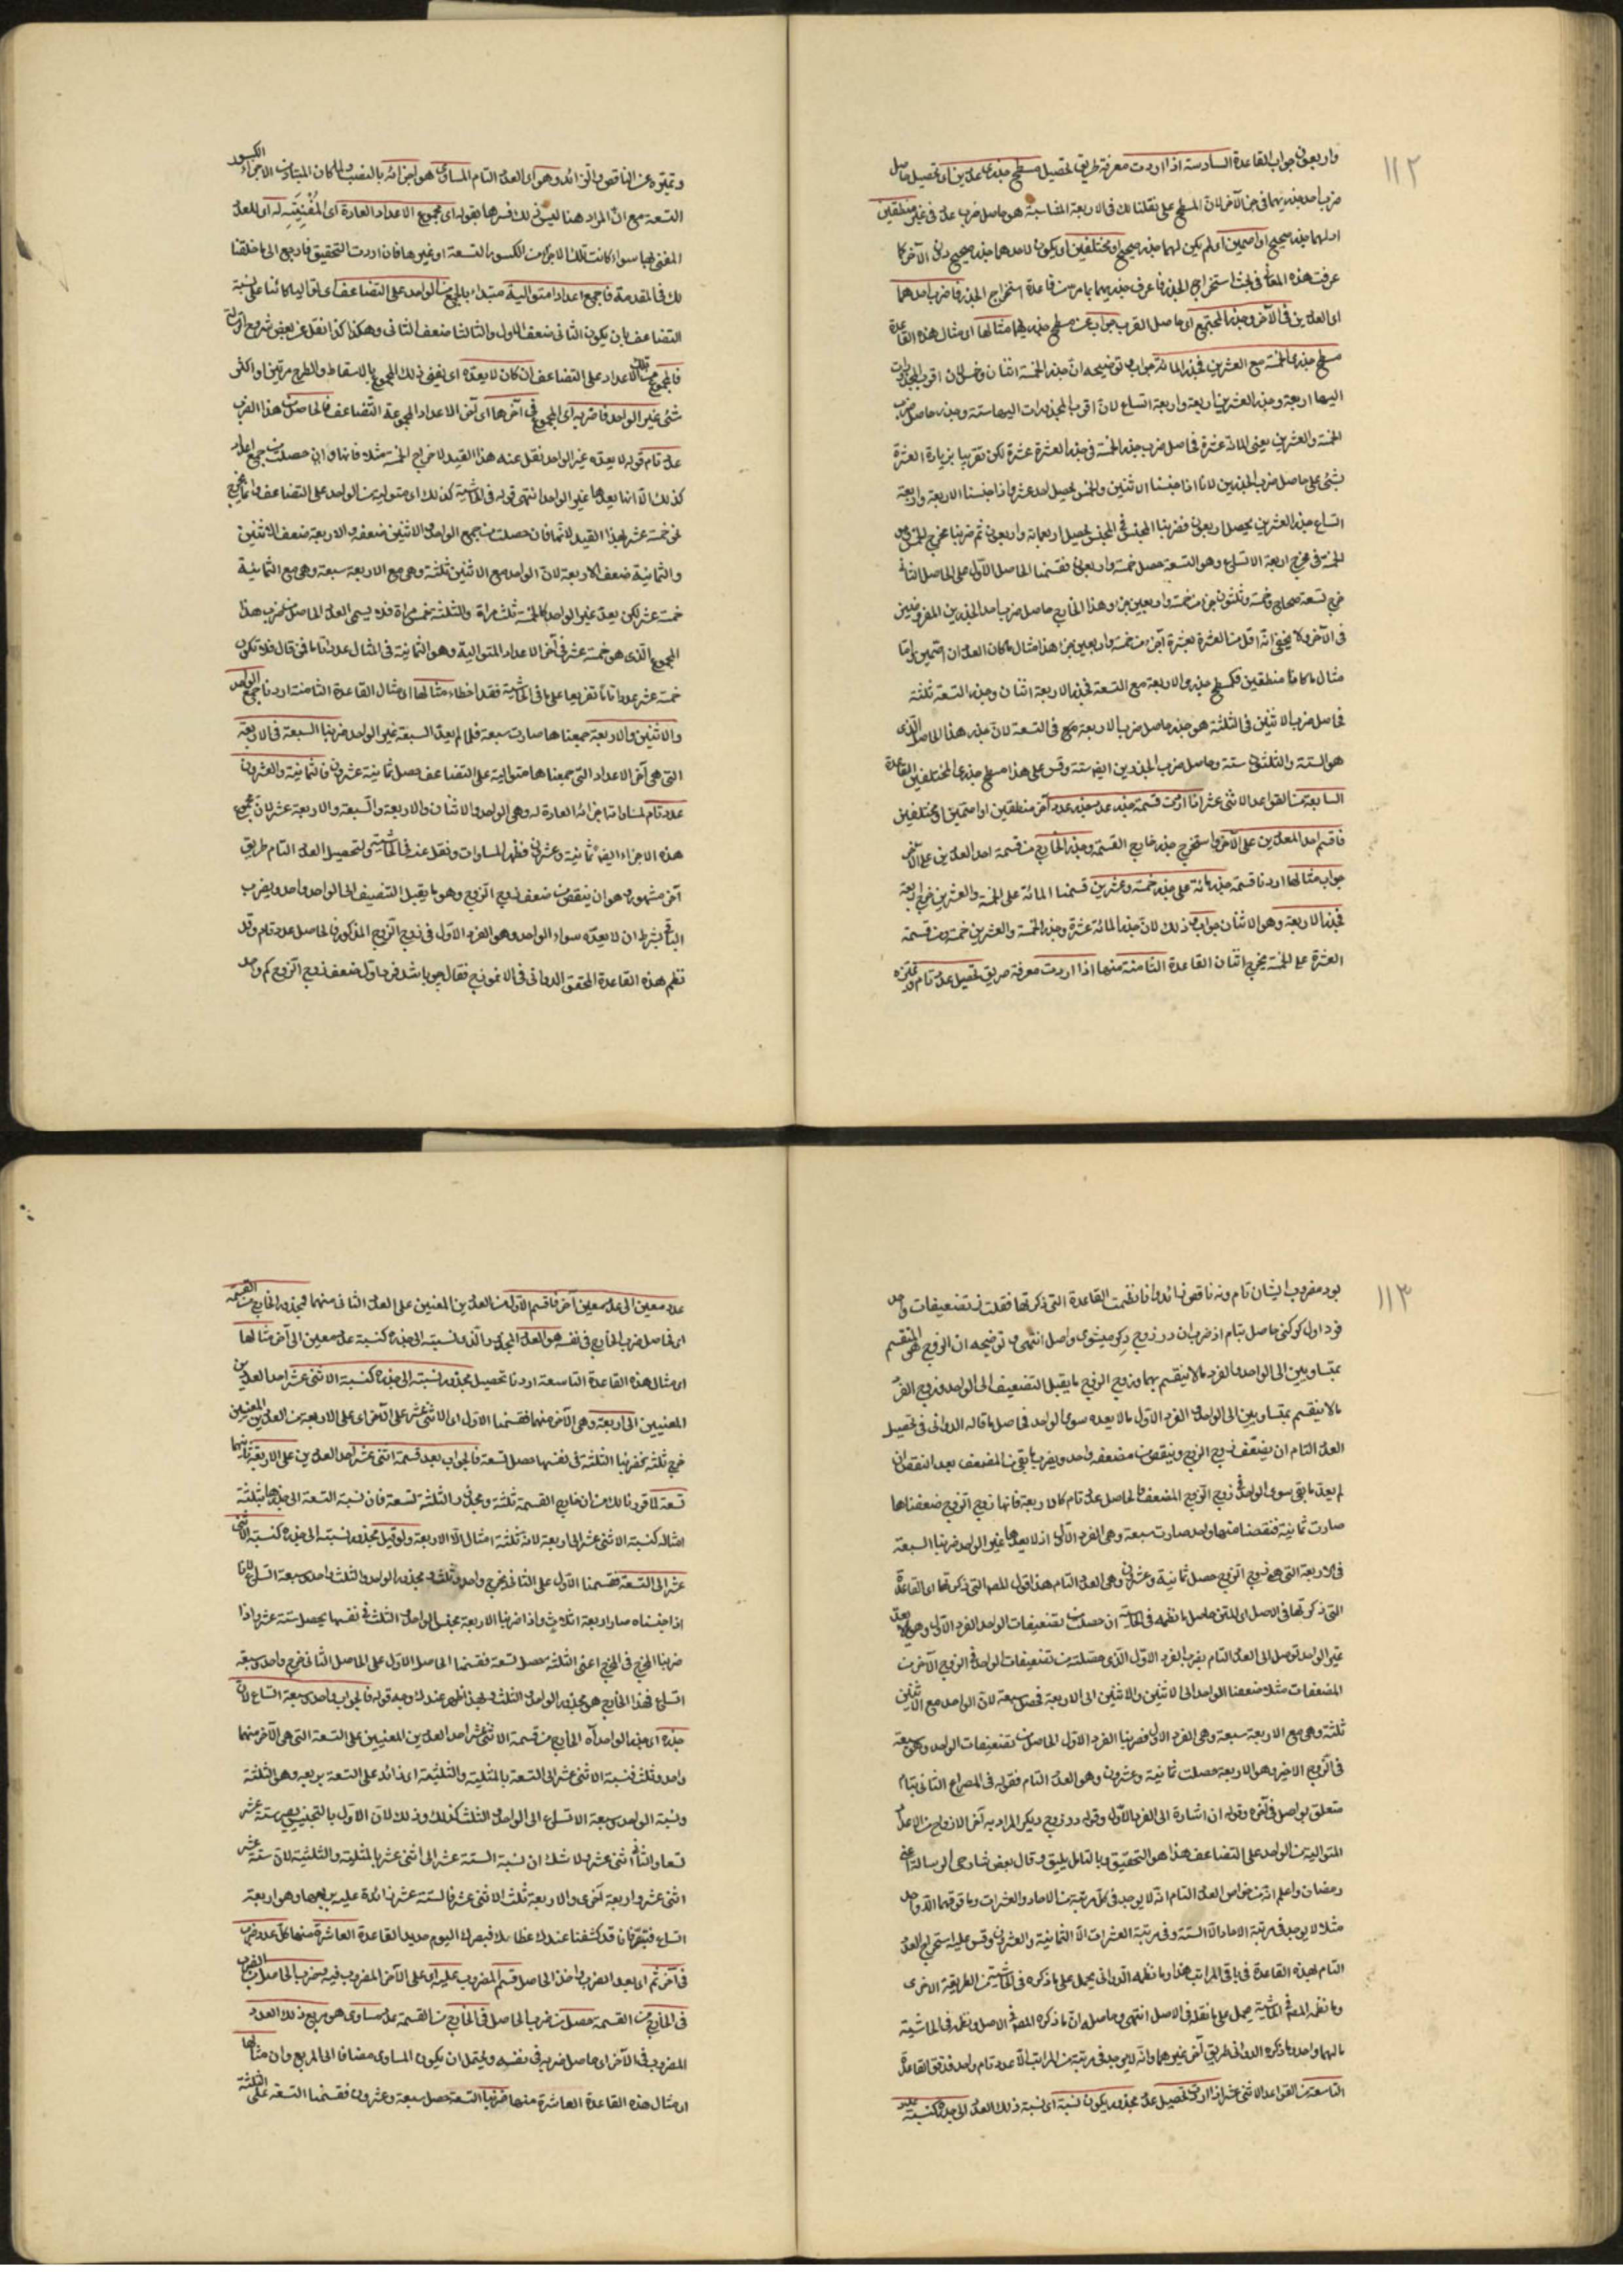 ١١٢
واربعون جواب القاعدة السادسة اذا اردت معرفة طريق تحصيل مسطح جذرى عددين او تحصيل حاصل
ضرب احد جذريهما فى جذر الآخر لان المسطح على نقلنا لك فى الاربعة المتناسبة هو حاصل ضرب عدد فى غيره منطقين
او لهما جذر صحيح او اصمين اى لم يكن لهما جذر صحيح او مختلفين اى يكون لاحدهما جذر صحيح دون الآخر كما
عرفت هذه المعانى فى بحث استخراج الجذر فاعرف جذريهما بما مر من قاعدة استخراج الجذر فاضرب احدهما
اى العددين فى الآخر وجذر المجتمع اى حاصل الضرب جواب عن مسطح جذريهما مثالها اى مثال هذه القاعدة
مسطح جذرى الخمسة مع العشرين فجذر المائة جواب توضيحه ان جذر الخمسة اثنان وخمس لان اقرب المجذورات
اليها اربعة وجذر العشرين اربعة واربعة اتساع لان اقرب المجذورات اليها ستة وجذر حاصل ضرب
الخمسة والعشرين يعنى المائة عشرة فحاصل ضرب جذر الخمسة فى جذر العشرة عشرة لكن تقريبا بزيادة العشرة
بشئ على حاصل ضرب الجذرين لانا اذا جنسنا الاثنين والخمس يحصل احد عشر واذا جنسنا الاربعة واربعة
اتساع جذر العشرين يحصل اربعون فضربنا المجنس فى المجنس يحصل اربعمائة واربعون ثم ضربنا مخرج الخمس
الخمسة فى مخرج اربعة الاتساع وهو التسعة حصل خمسة واربعون فقسمنا الحاصل الاول على الحاصل الثانى
خرج تسعة صحاح وخمسة وثلثون جزءا من خمسة واربعين جزءا وهذا الخارج حاصل ضرب احد الجذرين المفروضين
فى الآخر ولا يخفى انه اقل من العشرة بعشرة اجزاء من خمسة واربعين جزءا هذا مثال ما كان العددان اصمين واما
مثال ما كانا منطقين فكمسطح جذرى الاربعة مع التسعة فجذر الاربعة اثنان وجذر التسعة ثلثة
فحاصل ضرب الاثنين فى الثلثة هو جذر حاصل ضرب الاربعة فى التسعة لان جذر هذا الحاصل الذى
هو الستة والثلثون ستة وحاصل ضرب الجذرين ايضا ستة وقس على هذا مسطح جذرى المختلفين القاعدة
السابعة من القواعد الاثنى عشر اذا اردت قسمة جذر عدد على جذر عدد آخر منطقين او اصمين او مختلفين
فاقسم احد العددين على الآخر واستخرج جذر خارج القسمة وجذر الخارج من قسمة احد العددين على الآخر
جواب مثالها اردنا قسمة جذر مائة على جذر خمسة وعشرين قسمنا المائة على الخمسة والعشرين خرج اربعة
فجذر الاربعة وهو الاثنان جواب وذلك لان جذر المائة عشرة وجذر الخمسة والعشرين خمسة ومن قسمة
العشرة على الخمسة يخرج اثنان القاعدة الثامنة منها اذا اردت معرفة طريق تحصيل عدد تام وقد تميزه
وتميزه عن الناقص والزائد وهو اى العدد التام المساوى هو اجزائه بالنصب ولما كان المتبادر من الاجزاء الكسور
التسعة مع ان المراد هنا ليس ذلك فسرها بقوله اى مجموع الاعداد العادة اى المُفْنِيَةِ له اى للعدد
المفنى بها سواء كانت تلك الاجزاء من الكسور التسعة او غيرها فان اردت التحقيق فارجع الى ما حققنا
لك فى المقدمة فاجمع اعدادا متوالية مبتداء بالجمع من الواحد على التضاعف اى توالياً كائنا على نسبة
التضاعف بان يكون الثانى ضعف الاول والثالث ضعف الثانى وهكذا كذا نقل عن بعض شروح الرسالة
فالمجموع من تلك الاعداد على التضاعف ان كان لا يعده اى يفنى ذلك المجموع بالاسقاط والطرح مرتين او اكثر
شئ غير الواحد فاضربه اى المجموع فى آخرها اى آخر الاعداد المجموعة التضاعف فالحاصل من هذا الضرب
عدد تام قوله لا يعده غير الواحد نقل عنه هذا القيد لاخراج الخمسة مثلا فانها وان حصلت من جمع اعداد
كذلك الا انها يعدها غير الواحد انتهى قوله فى الحاشية كذلك اى متوالية من الواحد على التضاعف وانما يخرج
نحو خمسة عشر بهذا القيد لانها فان حصلت من جمع الواحد والاثنين ضعفه والاربعة ضعف الاثنين
والثمانية ضعف الاربعة لان الواحد مع الاثنين ثلثة وهى مع الاربعة سبعة وهى مع الثمانية
خمسة عشر لكن يعد غير الواحد كالخمسة ثلث مراة والثلثة خمس مراة فلا يسمى العدد الحاصل من ضرب هذا
المجموع الذى هو خمسة عشر فى آخر الاعداد المتوالية وهو الثمانية فى المثال عددا تاما فمن قال فلا تكون
خمسة عشر عددا تاما تفريعا على ما فى الحاشية فقد اخطاء مثالها اى مثال القاعدة الثامنة اردنا جمع الواحد
والاثنين والاربعة جمعناها صارت سبعة فلما لم يعد السبعة غير الواحد ضربنا السبعة فى الاربعة
التى هى آخر الاعداد التى جمعناها متوالية على التضاعف حصل ثمانية عشرون فالثمانية والعشرون
عدد تام لمساواته اجزائه العادة له وهى الواحد والاثنان والاربعة والسبعة والاربعة عشر لان مجموع
هذه الاجزاء ايضا ثمانية وعشرون فظهر المساوات ونقل عنه فى الحاشية ولتحصيل العدد التام طريق
آخر مشهور وهو ان ينقص من ضعف زوج الزوج وهو ما يقبل التنصيف الى الواحد واحد ويضرب
الباقى بشرط ان لا يعده سواء الواحد وهو الفرد الاول فى زوج الزوج المذكور فالحاصل عدد تام وقد
نظم هذه القاعدة المحقق الدوانى فى الانموذج فقال چو باشد فرد اول ضعف زوج الزوج كم واحد
١١٣
بود مضروب ايشان تام ورنه ناقص زائد وانا نظمت القاعدة التى ذكرتها فقلت ز تضعيفات واحد
فرد اول كر كنى حاصل بتام از ضرب ان در زوج ديكر ميشوى واصل انتهى و توضيحه ان الزوج هو المنقسم
بمتساويين الى الواحد والفرد ما لا ينقسم بهما وزوج الزوج ما يقبل التنصيف الى الواحد وزوج الفرد
ما لا ينقسم بمتساويين الى الواحد والفرد الاول ما لا يعده سوى الواحد فحاصل ما قاله الدوانى فى تحصيل
العدد التام ان يضعف زوج الزوج وينقص من مضعفه واحد ويضرب ما بقى من المضعف بعد النقصان
لم يعد ما بقى سوى الواحد فى زوج الزوج المضعف فالحاصل عدد تام كالاربعة فانها زوج الزوج ضعفناها
صارت ثمانية فنقصنا منها واحد صارت سبعة وهى الفرد الاول اذ لا يعدها غير الواحد ضربنا السبعة
فى الاربعة التى هى زوج الزوج حصل ثمانية وعشرون وهى العدد التام هذا قول المص التى ذكرتها اى القاعدة
التى ذكرتها فى الاصل اى المتن حاصل ما نظمه فى الحاشية ان حصلت من تضعيفات الواحد الفرد الاول وهو ما لا يعده
غير الواحد توصل الى العدد التام بضرب الفرد الاول الذى حصلته من تضعيفات الواحد فى الزوج الآخر من
المضعفات مثلا ضعفنا الواحد الى الاثنين والاثنين الى الاربعة فحصل سبعة لان الواحد مع الاثنين
ثلثة وهى مع الاربعة سبعة وهى الفرد الاول فضربنا الفرد الاول الحاصل من تضعيفات الواحد وهو سبعة
فى الزوج الاخير وهو الاربعة حصلت ثمانية وعشرون وهو العدد التام فقوله فى المصراع الثانى بتام
متعلق بواصل فى آخره وقوله ان اشارة الى الفرد الاول وقوله در زوج ديكر المراد به آخر الازواج من الاعداد
المتوالية من الواحد على التضاعف هذا هو التحقيق وبالتامل يليق وقال بعض شارحى الرسالة اعنى
رمضان واعلم ان من خواص العدد التام انه لا يوجد فى كل مرتبة من الاحاد والعشرات وما فوقهما الا واحد
مثلا لا يوجد فى مرتبة الاحاد الا الستة وفى مرتبة العشرات الا الثمانية والعشرون وقس عليه استخراج العدد
التام بهذه القاعدة فى باقى المراتب هذا وما نظمه الدوانى يحمل على ما ذكره فى الحاشية من الطريقة الاخرى
وما نظمه المص فى الحاشية يحمل على ما نقله فى الاصل انتهى وحاصله ان ما ذكره المص فى الاصل ونظمه فى الحاشية
مالهما واحد وما ذكره الدوانى طريق آخر غيرهما وانه لا يوجد فى مرتبة من المراتب الا عدد تام واحد فدقق القاعدة
التاسعة من القواعد الاثنى عشر اذا اردت تحصيل عدد مجذور يكون نسبة اى نسبة ذلك العدد الى جذره كنسبة عدد
عدد معين الى عدد معين آخر فاقسم الاول من العددين المعينين على العدد الثانى منهما فمجذور الخارج من القسمة
اى فحاصل ضرب الخارج فى نفسه هو العدد المجذور الذى نسبته الى جذره كنسبة عدد معين الى آخر مثالها
اى مثال هذه القاعدة التاسعة اردنا تحصيل مجذور نسبته الى جذره كنسبة الاثنى عشر احد العددين
المعنيين الى اربعة وهى الآخر منهما فقسمنا الاول اى الاثنى عشر على الآخر اى على الاربعة من العددين المعنيين
خرج ثلثة فضربنا الثلثة فى نفسها حصل تسعة فالجواب بعد قسمة اثنى عشر احد العددين على الاربعة ثانيهما
تسعة لما قررنا لك من ان خارج القسمة ثلثة ومجذور الثلثة تسعة فان نسبة التسعة الى جذرها بثلثة
امثاله كنسبة الاثنى عشر الى اربعة لانه ثلثة امثال الا الاربعة ولو قيل مجذور نسبته الى جذره كنسبة الاثنى
عشر الى التسعة فقسمنا الاول على الثانى يخرج واحد وثلث ومجذور الواحد والثلث واحد وسبعة اتساع لانا
اذا جنسناه صار اربعة اثلاث واذا ضربنا الاربعة مجنس الواحد والثلث فى نفسها يحصل ستة عشر واذا
ضربنا المخرج فى المخرج اعنى الثلثة حصل تسعة فقسمنا الحاصل الاول على الحاصل الثانى خرج واحد وسبعة
اتساع فهذا الخارج هو مجذور الواحد والثلث فبهذا ظهر عندك وجه قوله فالجواب واحد وسبعة اتساع لان
جذره اى جذر الواحد آه الخارج من قسمة الاثنى عشر احد العددين المعنيين على التسعة التى هى الآخر منهما
واحد وثلث فنسبة الاثنى عشر الى التسعة بالمثلية والثلثية اى زائد على التسعة بربعه وهو الثلثة
ونسبة الواحد وسبعة الاتساع الى الواحد والثلث كذلك وذلك لان الاول بالتجنيس يصير ستة عشر
تسعا والثانى اثنى عشر ولا شك ان نسبة الستة عشر الى اثنى عشر بالمثلية والثلثية لان ستة عشر
اثنى عشر واربعة اخرى والاربعة ثلث الاثنى عشر فالستة عشر زائدة عليه بربعها وهو اربعة
اتساع فتبقر فانا قد كشفنا عندك غطائك فبصرك اليوم حديد القاعدة العاشرة منها كل عدد ضرب
فى آخر ثم اى بعد الضرب واخذ الحاصل قسم المضروب عليه اى على الآخر المضروب فيه وضرب الحاصل من الضرب
فى الخارج من القسمة حصل من ضرب الحاصل فى الخارج من القسمة عدد مساوى هو مربع ذلك العدد
المضروب فى الآخر اى حاصل ضربه فى نفسه ويحتمل ان يكون المساوى مضافا الى المربع وان مثالها
اى مثال هذه القاعدة العاشرة منها ضربنا التسعة حصل سبعة وعشرون فقسمنا التسعة على الثلثة